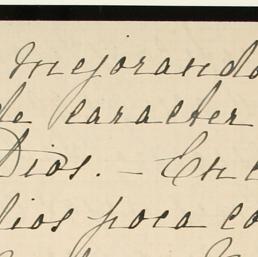 mejorando
de caracter
Dios. — En
poca